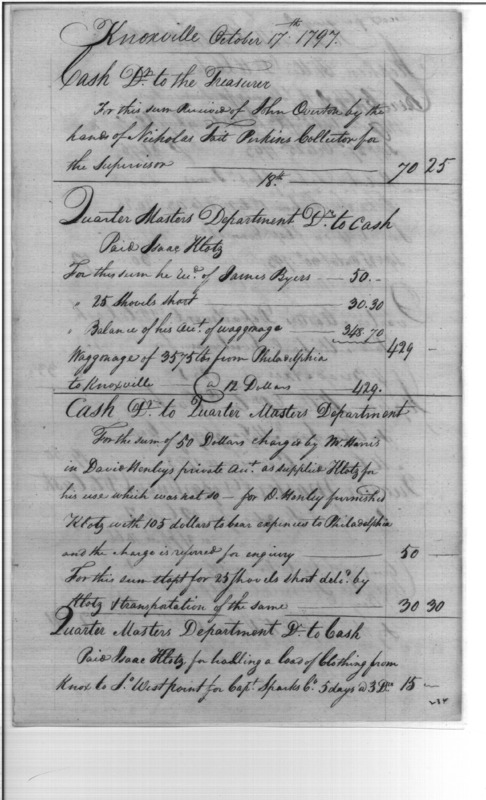 Knoxville October 17th 1797.
Cash Dr. to the Treasurer
For this sum Received of John Overton by the
hands of Nicholas Tait Perkins Collector for
the Supervisor 70 25
18th
Quarter Masters Department Dr. to Cash
Paid Isaac Klotz
For this sum he recd. of James Byers 50.-
" 25 Shovels short 30.30
" Balance of his Acct. of waggonage 348.70
429 -
Waggonage of 3575 lbs from Philadelphia
to Knoxville @ 12 Dollars 429.
Cash Dr. to Quarter Masters Department
For the sum of 50 Dollars charged by Mr. Harris
in David Henley's private Acct. as supplied Klotz for
his use which was not so - for D. Henley furnished
Klotz with 105 dollars to bear expences to Philadelphia
and the charge is referred for enquiry 50 -
For this sum stopt for 25 shovels short deld. by
Klotz & transportation of the same 30 30
Quarter Masters Department Dr. to Cash
Paid Isaac Klotz for halling a load of Clothing from
Knox to So. West point for Capt. Sparks Co. 5 days @ 3 Drs 15 -